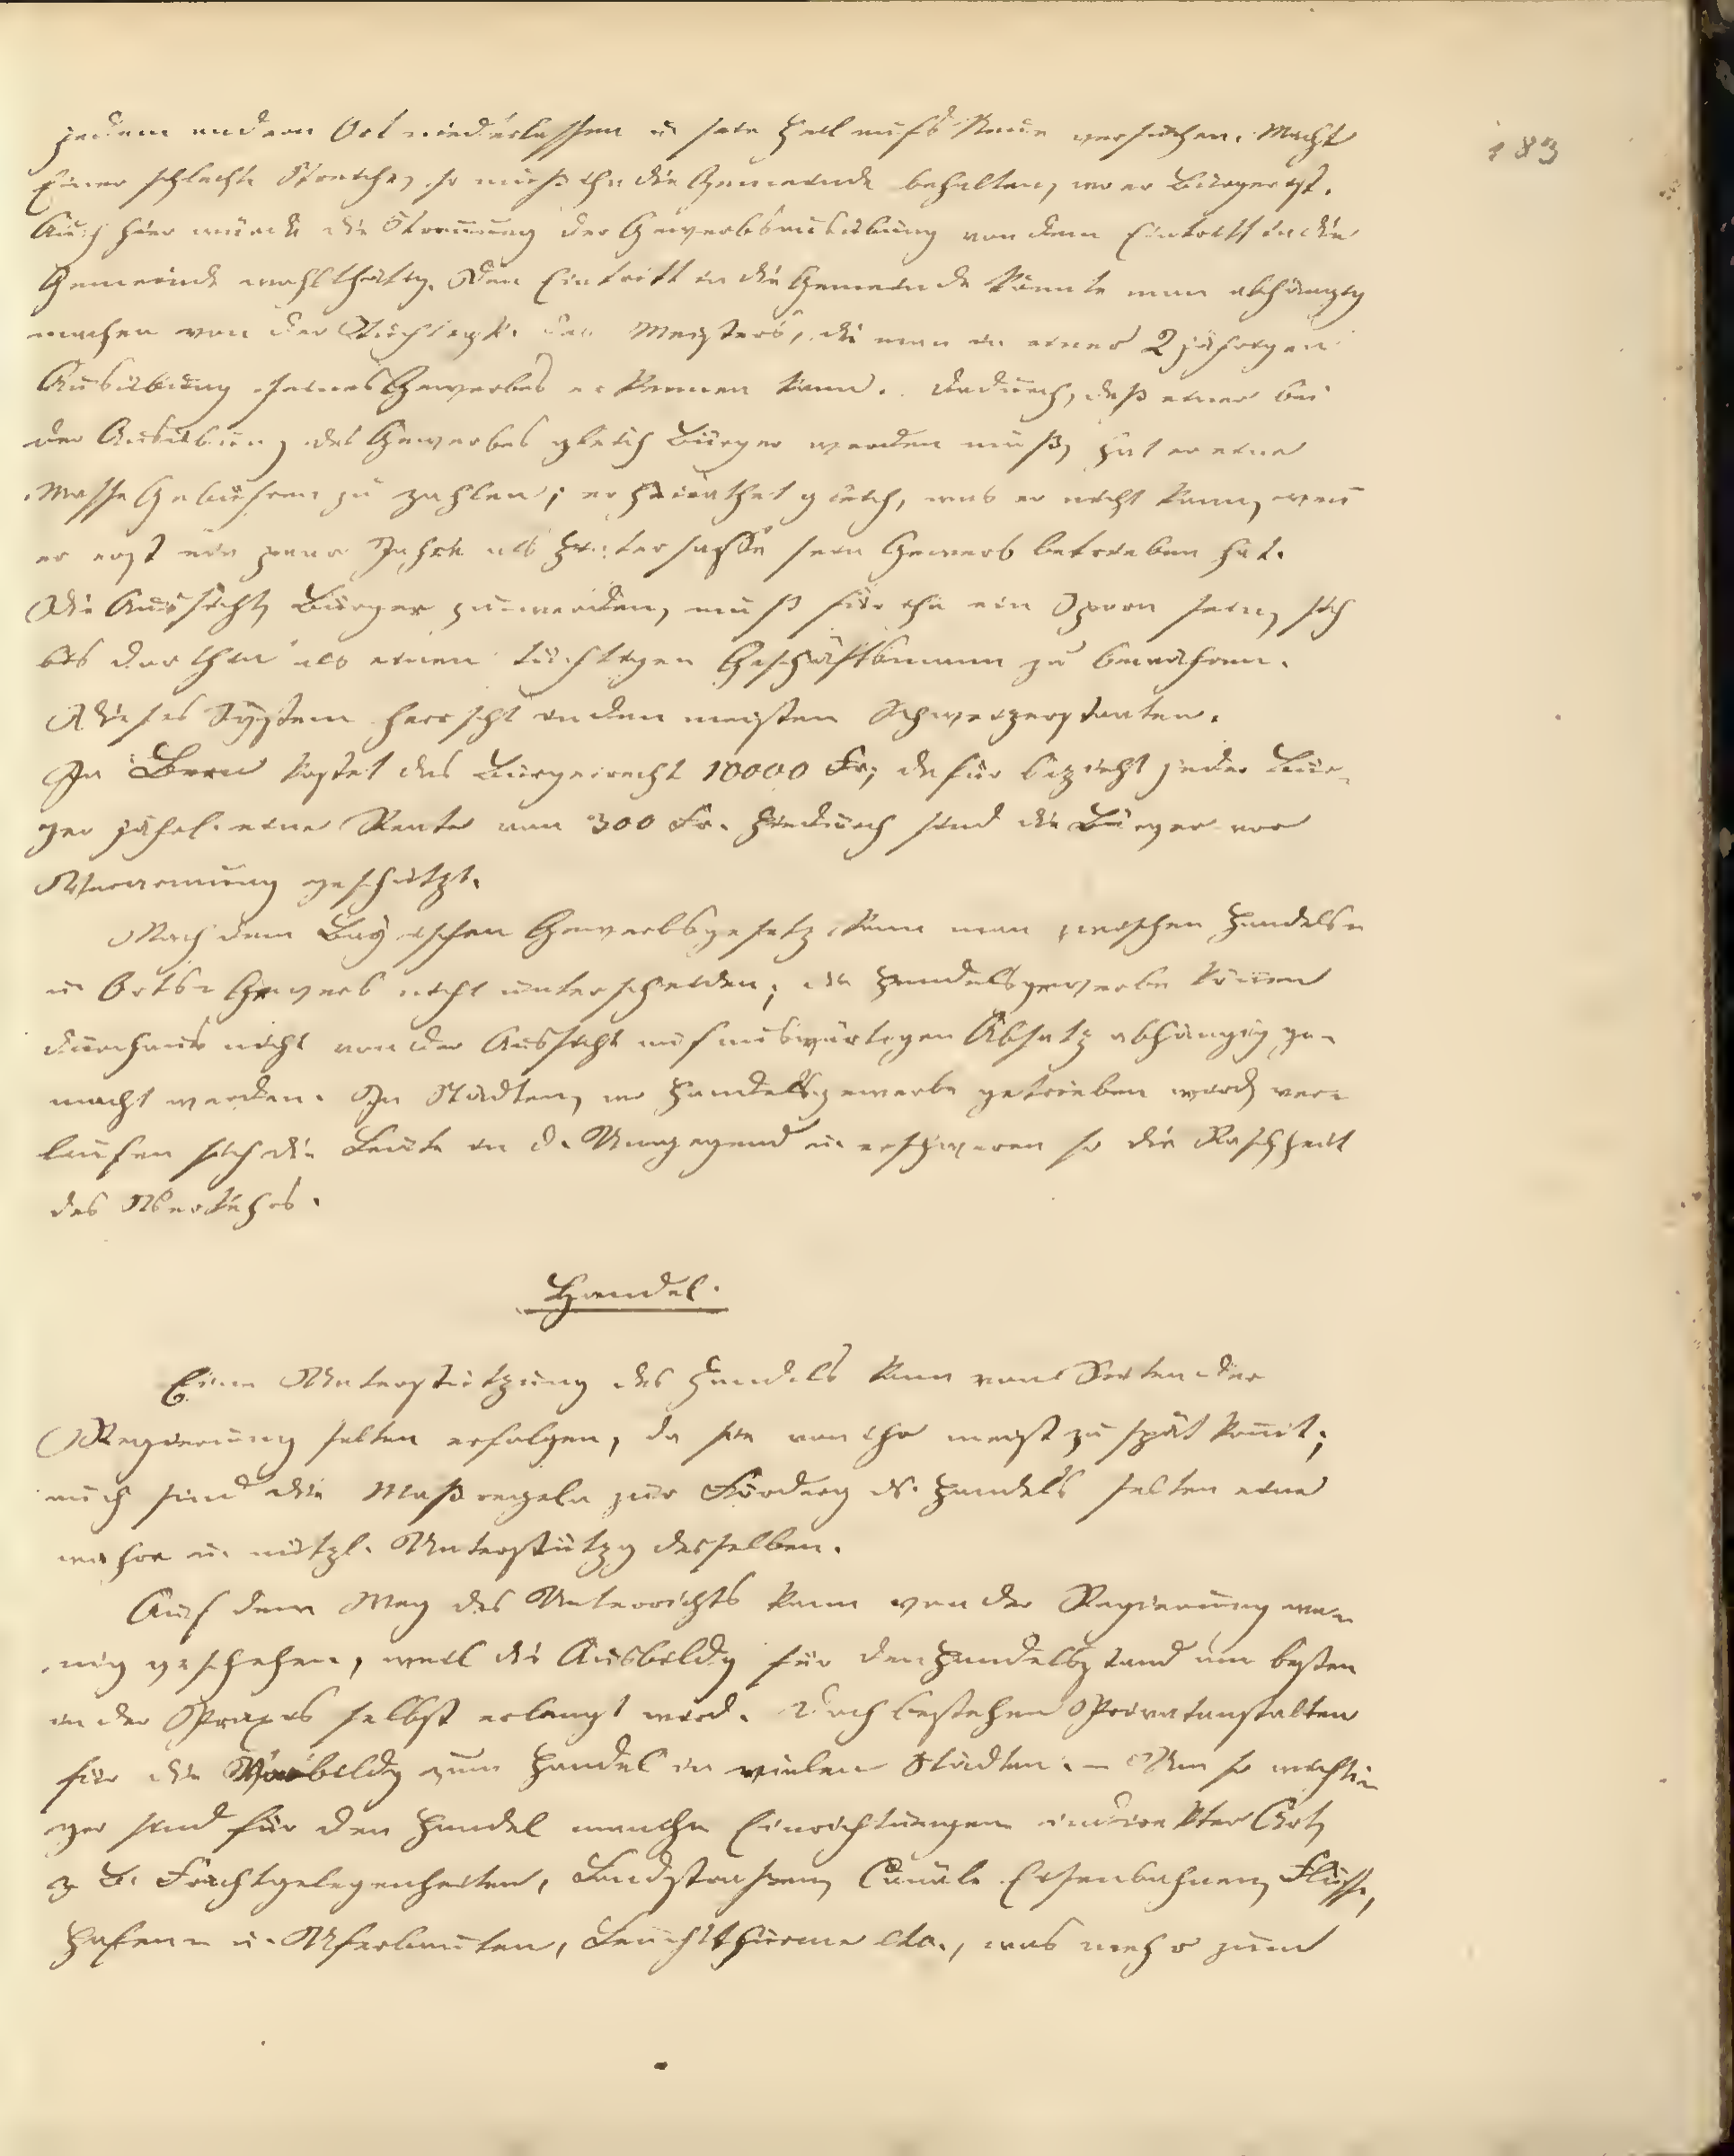 183
jedem andern Ort niederlassen u. sein Heil aufs Neue versuchen. Macht
Einer schlechte Streiche, so muß ihn die Gemeinde behalten, wo er Bürger ist.
Auch hier würde die Trennung der Gewerbsausübung von dem Eintritt in die
Gemeinde wohlthätig. Den Eintritt in die Gemeinde könnte man abhängig
machen von der Tüchtigk. des Meisters, die man in einer 2 jährigen
Ausübung seines Gewerbes erkennen kann. Dadurch, daß einer bei
der Ausübung des Gewerbes gleich Bürger werden muß, hat er eine
Masse Gebühren zu zahlen; er heirathet gleich, was er nicht kann, wen̄
er erst ein paar Jahre als Hintersasse sein Gewerb betrieben hat.
Die Aussicht, Bürger zu werden, muß für ihn ein Sporn sein, sich
bis dorthin als einen tüchtigen Geschäftsmann zu bewähren.
Dieses System herrscht in den meisten Schweizerstaaten.
In Bern kostet das Bürgerrecht 10000 Fr; dafür bezieht jeder Bür-
ger jährl. eine Rente von 300 Fr. Hiedurch sind die Bürger vor
Verarmung geschützt.
Nach dem Bayrischen Gewerbsgesetz kann man zwischen Handels-
u. Orts-Gewerb nicht unterscheiden; die Handelsgewerbe kön̄en
durchaus nicht von der Aussicht auf auswärtigen Absatz abhängig ge-
macht werden. In Städten, wo Handelsgewerbe getrieben wird, ver-
laufen sich die Leute in d. Umgegend u. erschweren so die Raschheit
des Verkehrs.
Handel.
Eine Unterstützung des Handels kann von Seiten der
Regierung selten erfolgen, da sie von ihr meist zu spät kom̄t;
auch sind die Maßregeln zur Förderg ds. Handels selten eine
wahre u. nützl. Unterstützg desselben.
Auf dem Weg des Unterrichts kann von der Regierung we-
nig geschehen, weil die Ausbildg für den Handelsstand am besten
in der Praxis selbst erlangt wird. Doch bestehen Privatanstalten
für die Vorbildg zum Handel in vielen Städten. – Um so wichti-
ger sind für den Handel manche Einrichtungen indirekter Art,
z. B. Frachtgelegenheiten, Landstraßen, Canäle Eisenbahnen, Flüsse,
Hafen- u. Uferbauten, Leuchtthürme etc., was mehr zum